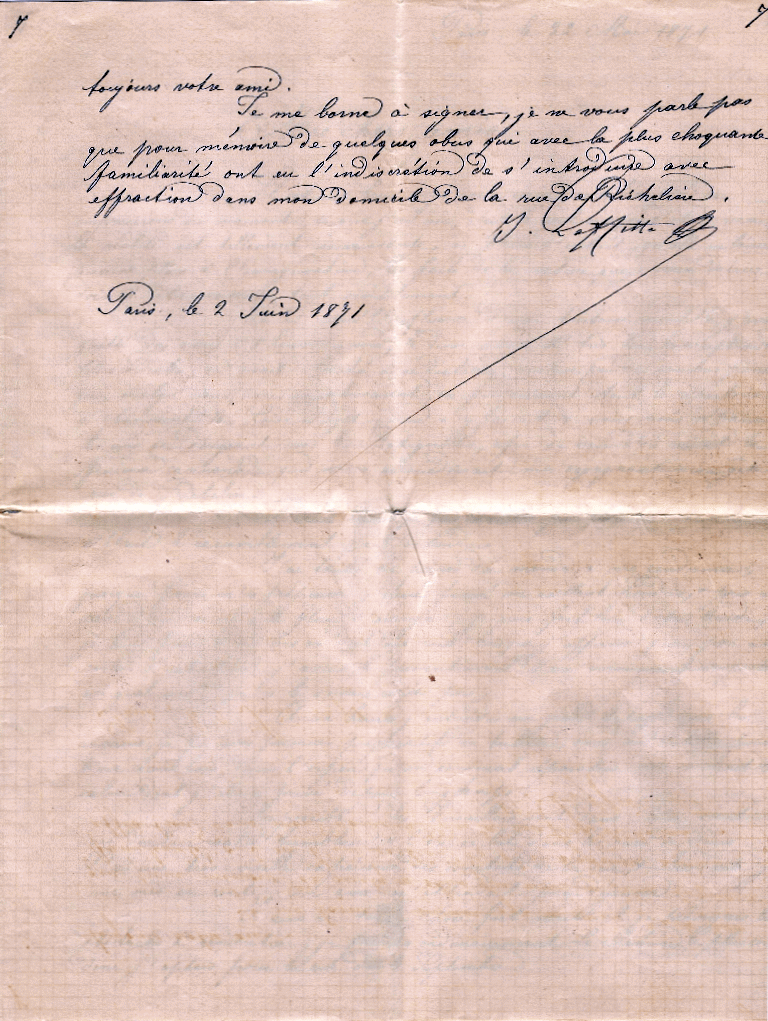 7 7
toujours votre ami.
Je me borne à signer, je ne vous parle pas
que pour mémoire de quelques obus qui avec la plus choquante
familiarité ont eu l'indiscrétion de s'introduire avec
effraction dans mon domicile de la rue de Richelieu.
J. Laffitte
Paris, le 2 Juin 1871